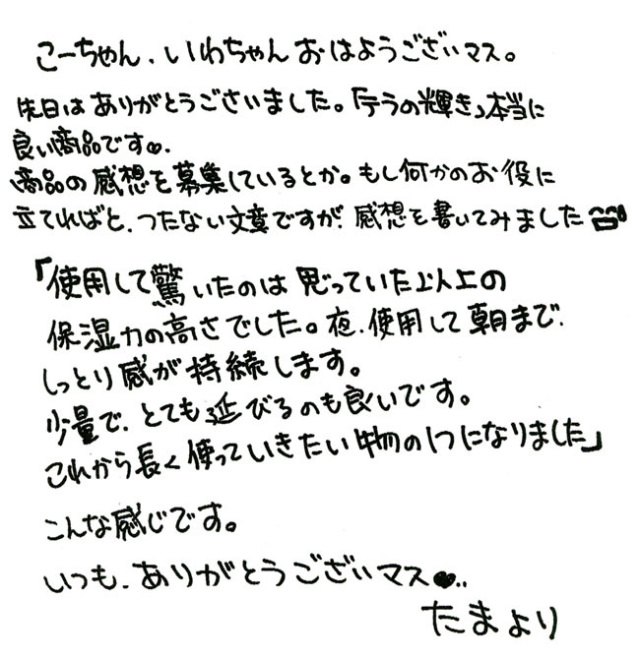 こーちゃん、いわちゃんおはようございマス。
先日はありがとうございました。「テラの輝き」本当に
良い商品です♡.
商品の感想を募集しているとか。もし何かのお役に
立てればと、つたない文章ですが、感想を書いてみました
「使用して驚いたのは思っていた以上の
保湿力の高さでした。夜、使用して朝まで、
しっとり感が持続します。
少量で、とても延びるのも良いです。
これから長く使っていきたい物の1つになりました」
こんな感じです。
いつも、ありがとうございマス♥..
たまより